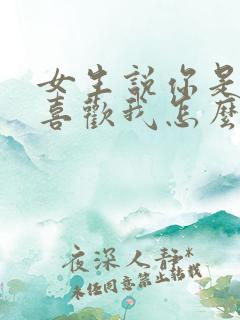 女生說你是
喜歡我怎麼
夜深人靜*
未经同意禁止转载